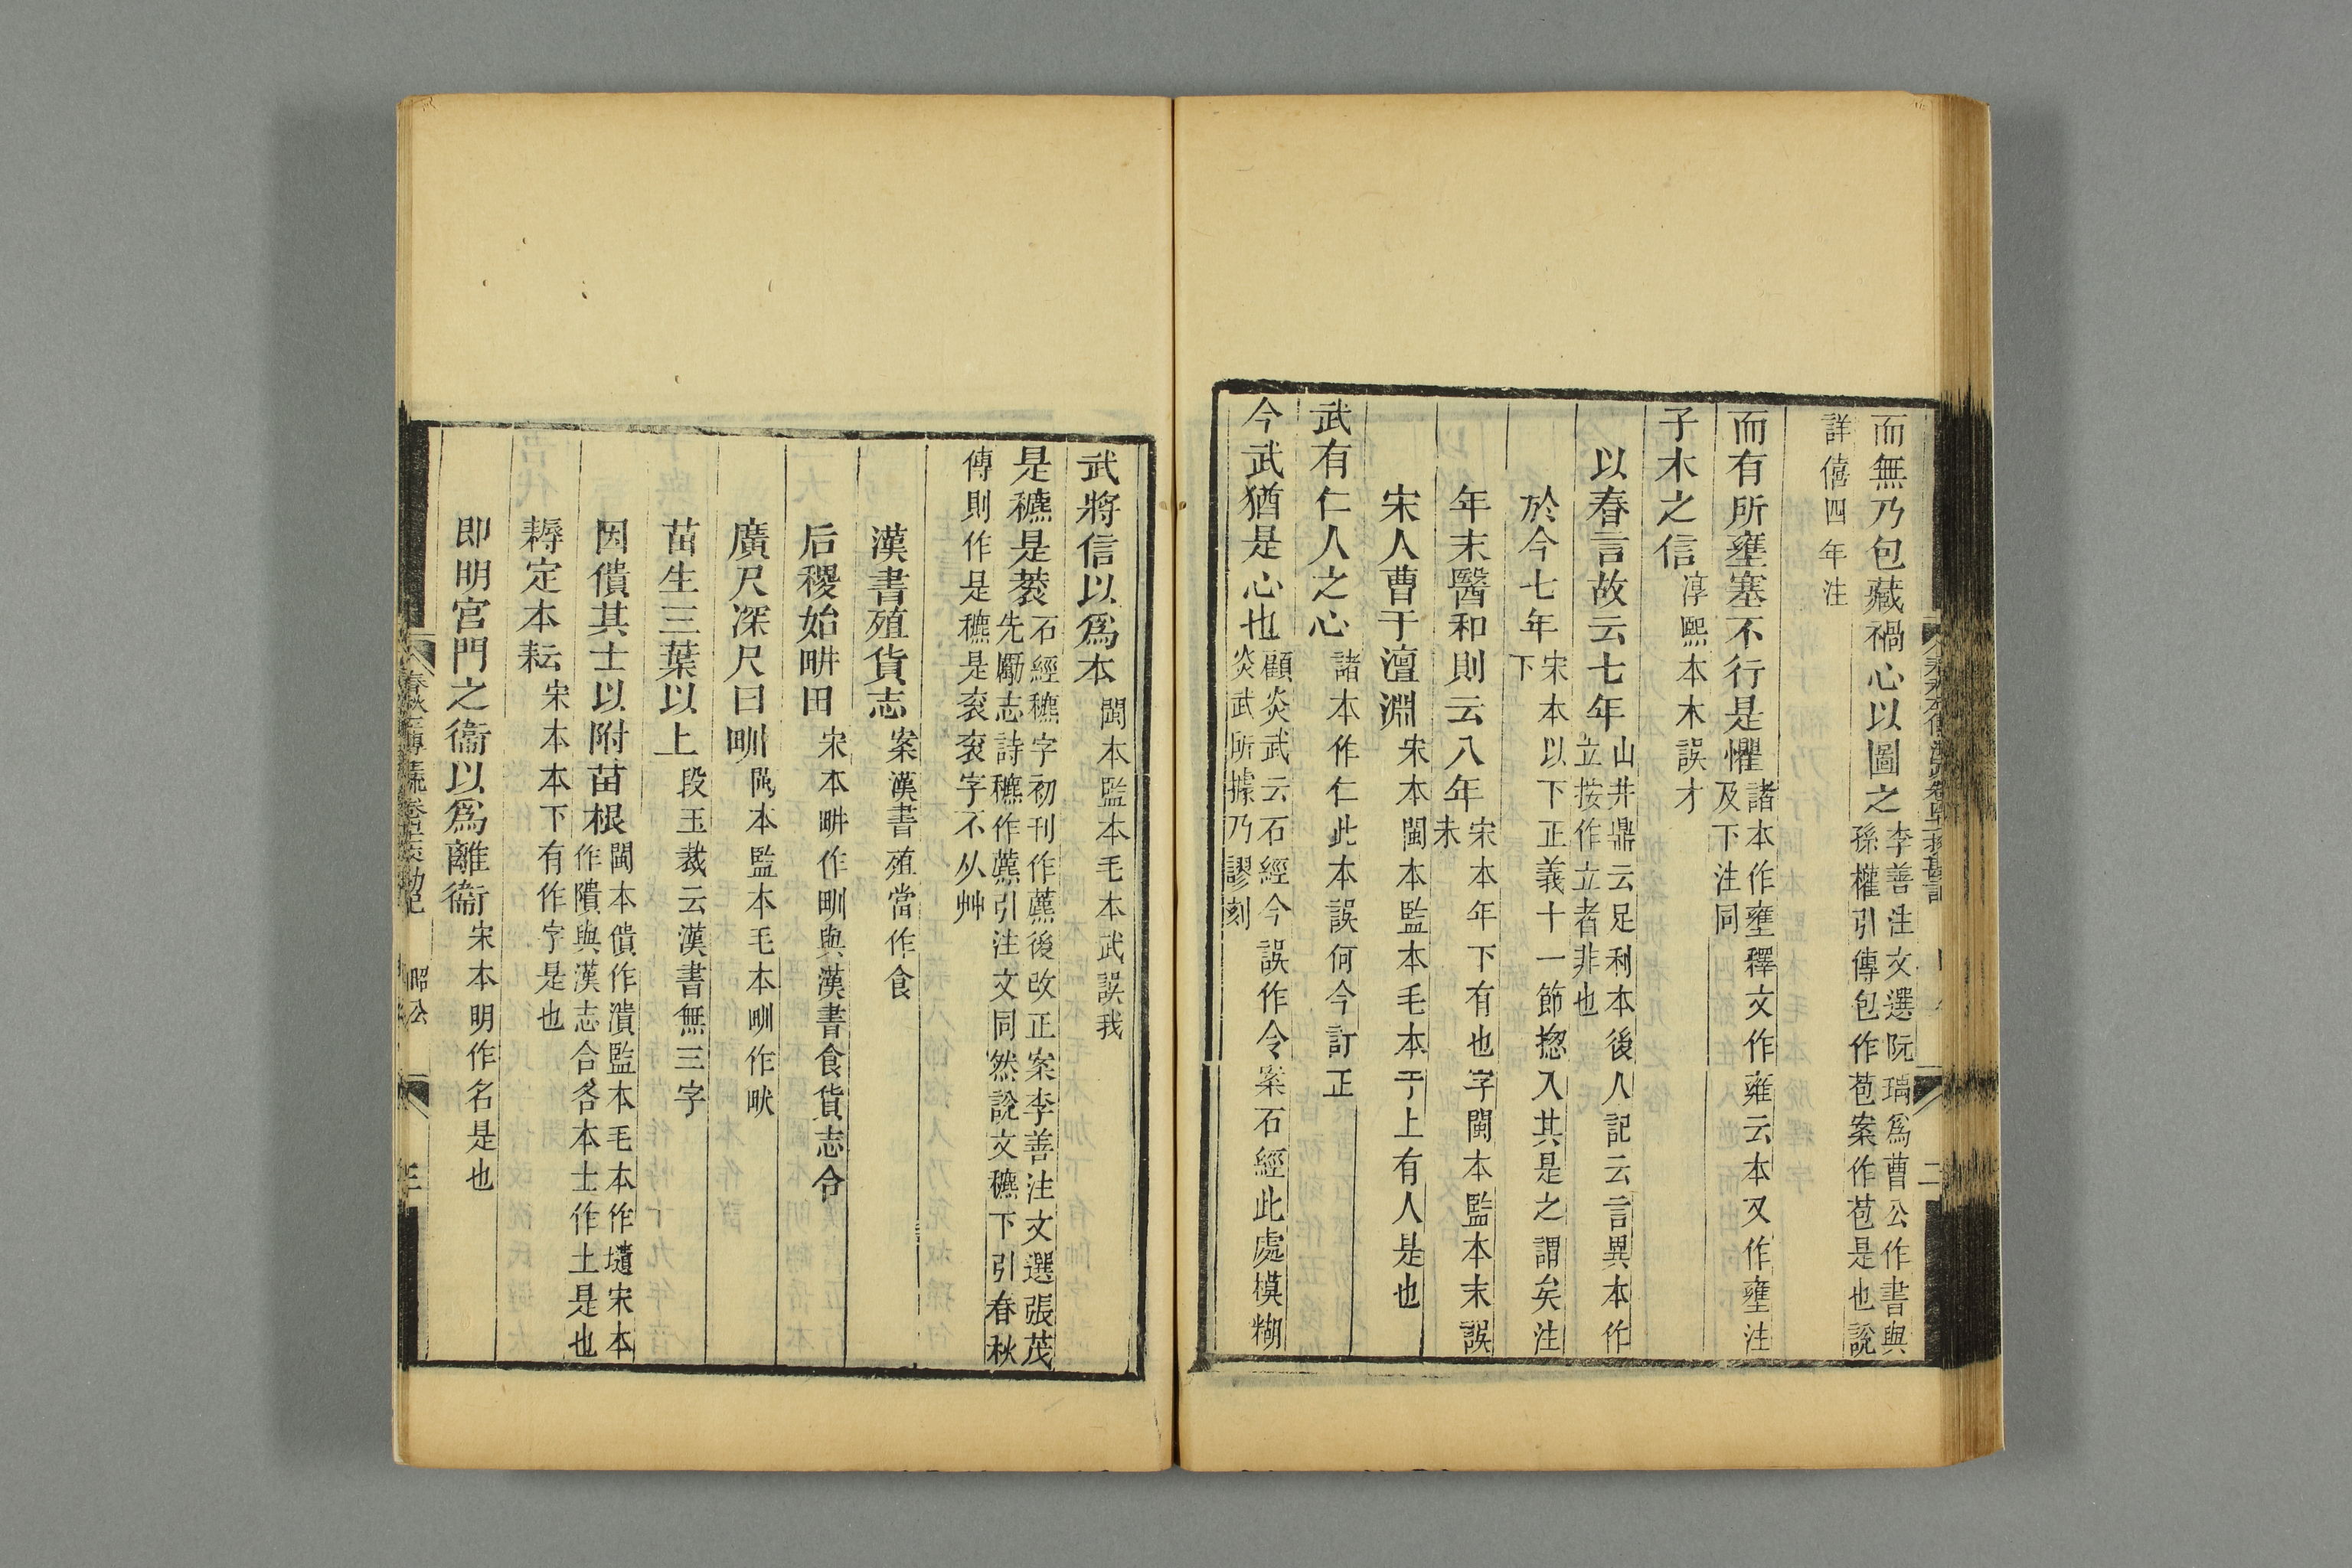 而無乃包藏禍心以圖之李善注文選阮瑀爲曹公作書與孫權引傳包作苞案作苞是也說
詳僖四年注
而有所壅塞不行是懼諸本作壅釋文作雍云本又作壅注及下注同
子木之信淳熙本木誤才
以舂言故云七年山井鼎云足利本後人記云言異本作立按作立者非也
於今七年宋本以下正義十一節揔入其是之謂矣注下
年末醫和則云八年宋本年下有也字閩本監本末誤未
宋人曹于澶淵宋本閩本監本毛本于上有人是也
武有仁人之心諸本作仁此本誤何今訂正
今武猶是心也顧炎武云石經今誤作令案石經此處模糊炎武所據乃謬刻
武將信以爲本閩本監本毛本武誤我
是穮是蔉石經穮字初刊作藨後改正案李善注文選張茂先勵志詩穮作藨引注文同然說文穮下引春秋
傳則作是穮是衮衮字不从艸
漢書殖貨志案漢書殖當作食
后稷始畊田宋本畊作甽與漢書食貨志合
廣尺深尺曰甽閩本監本毛本甽作畎
苗生三葉以上段玉裁云漢書無三字
因儥其士以附苗根閩本儥作潰監本毛本作壝宋本作隤與漢志合各本士作土是也
耨定本耘宋本本下有作字是也
即明宮門之衞以爲離衞宋本明作名是也
昭公
三